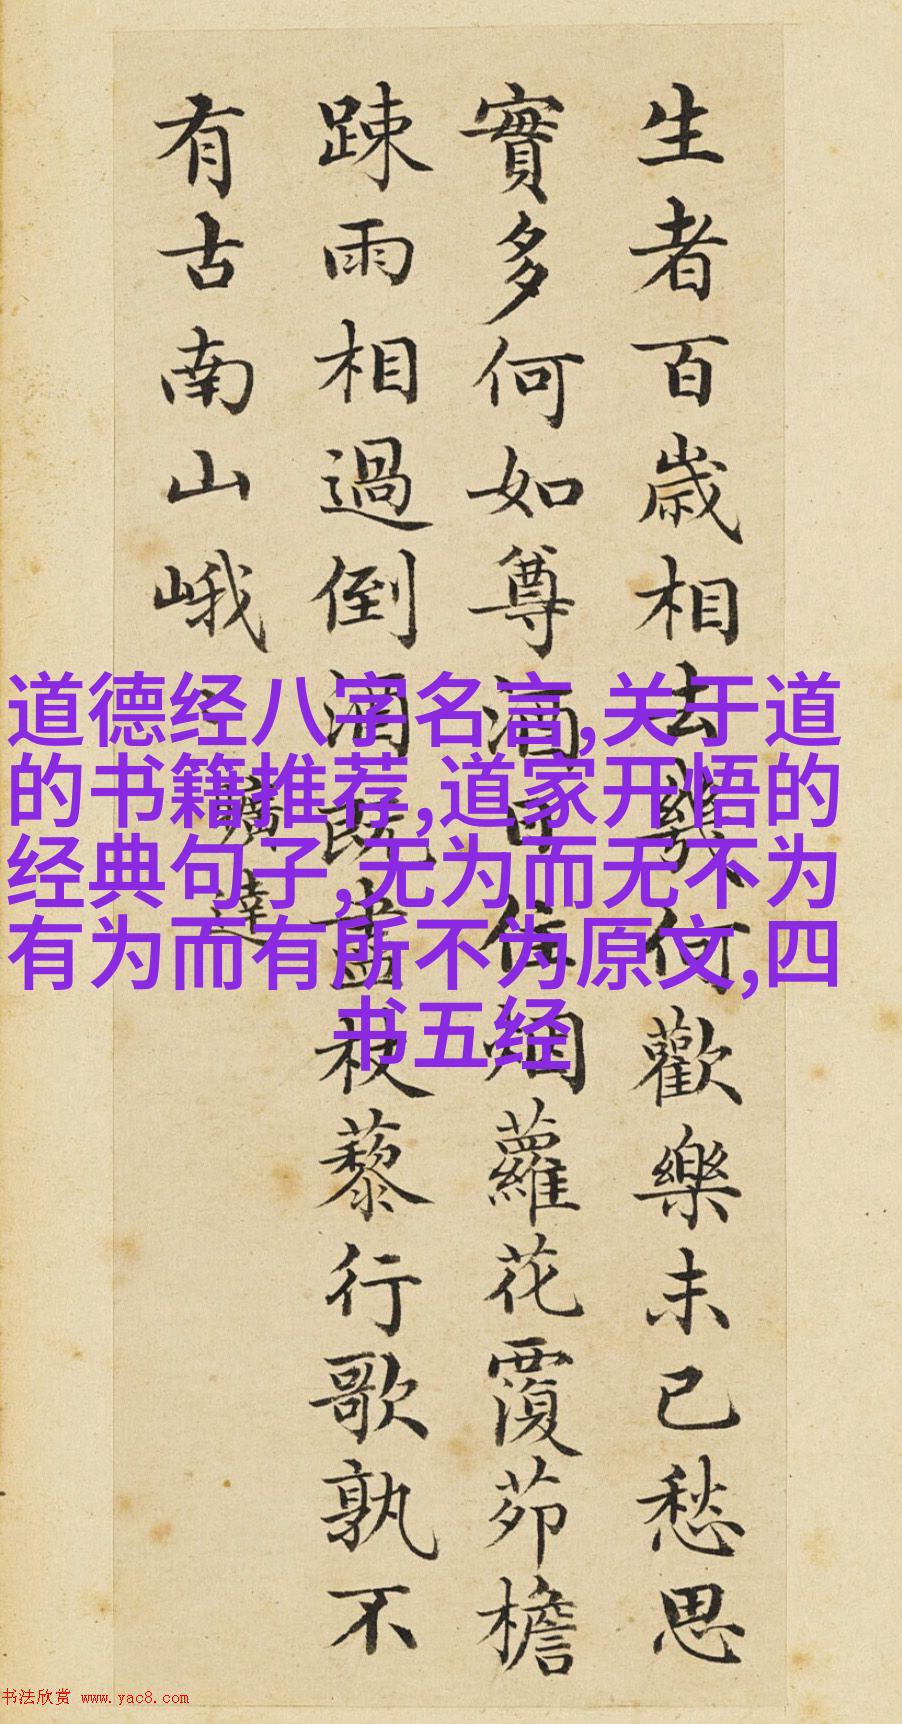 生者百歲相去幾何歡樂未已愁思
實多何如尊酒日往烟蘿花覆茆檐
踈雨相過倒酒既盡杖藜行歌孰不
有古南山峨〻
曠達
道德经八字名言,关于道
的书籍推荐,道家开悟的
经典句子,无为而无不为
有为而有所不为原文,四
书五经
书法欣赏 www.yac8.com